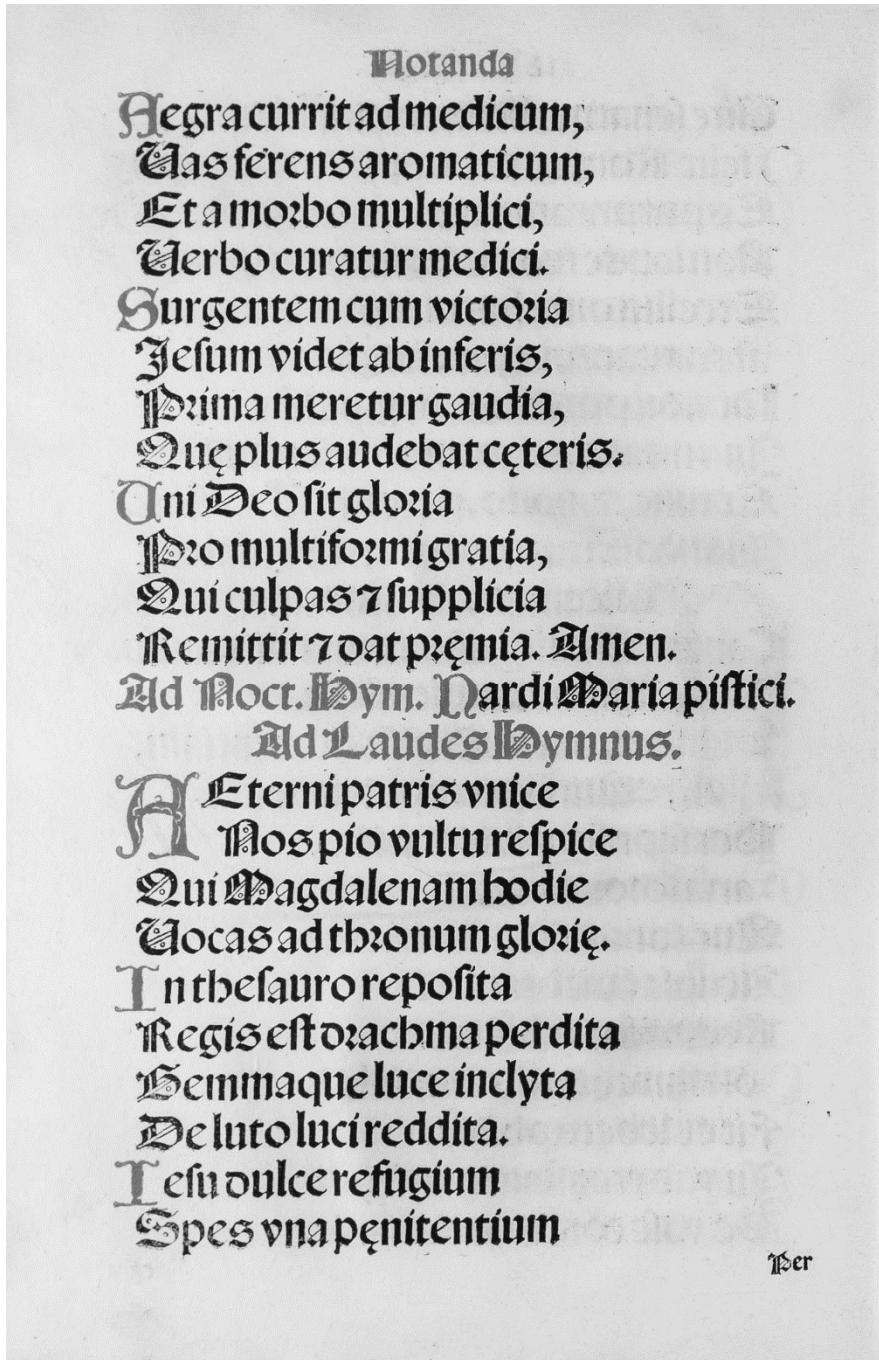 Notanda
Aegra currit ad medicum,
Uas ferens aromaticum,
Et a morbo multiplici,
Uerbo curatur medici.
Surgentem cum victoria
Jesum videt ab inferis,
Prima meretur gaudia,
Quę plus audebat cęteris.
Uni Deo sit gloria
Pro multiformi gratia,
Qui culpas ⁊ supplicia
Remittit ⁊ dat pręmia. Amen.
Ad Noct. Hym. Nardi Maria pistici.
Ad Laudes Hymnus.
AEterni patris vnice
Nos pio vultu respice
Qui Magdalenam hodie
Uocas ad thronum glorię.
In thesauro reposita
Regis est drachma perdita
Gemmaque luce inclyta
De luto luci reddita.
Iesu dulce refugium
Spes vna pęnitentium
Per